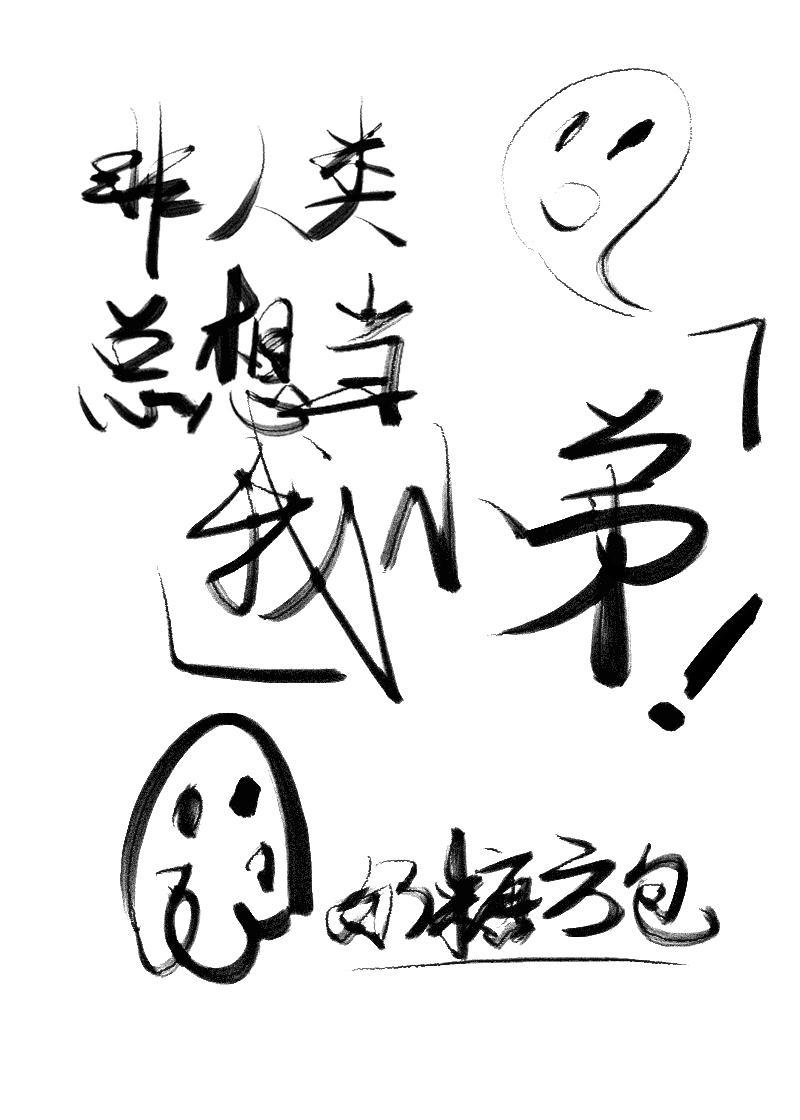 非人类
总想当
我小弟！
奶糖方包